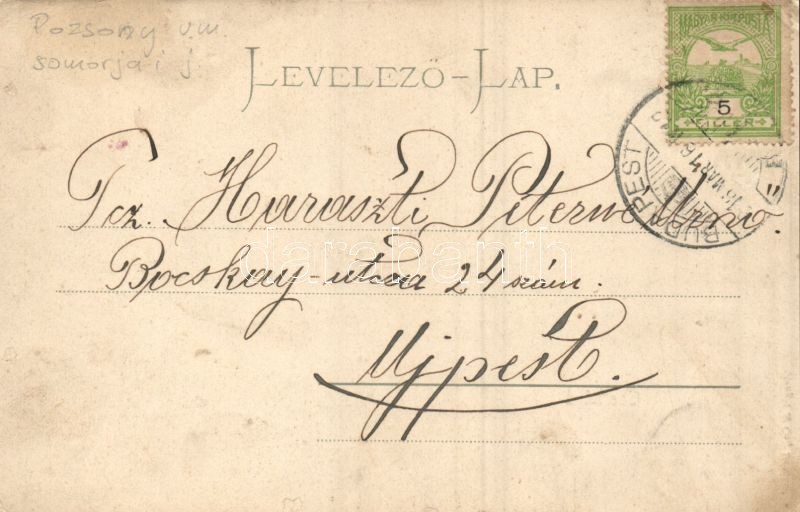 Pozsony v.m
somorja i j.
LEVELEZŐ-LAP.
MAGYAR KIR. POSTA
5
FILLER
BUDAPEST
MAR
Tcz. Haraszti Péterné Urnő
"
Bocskay-utcza 24 szám.
Ujpest.
darabanth